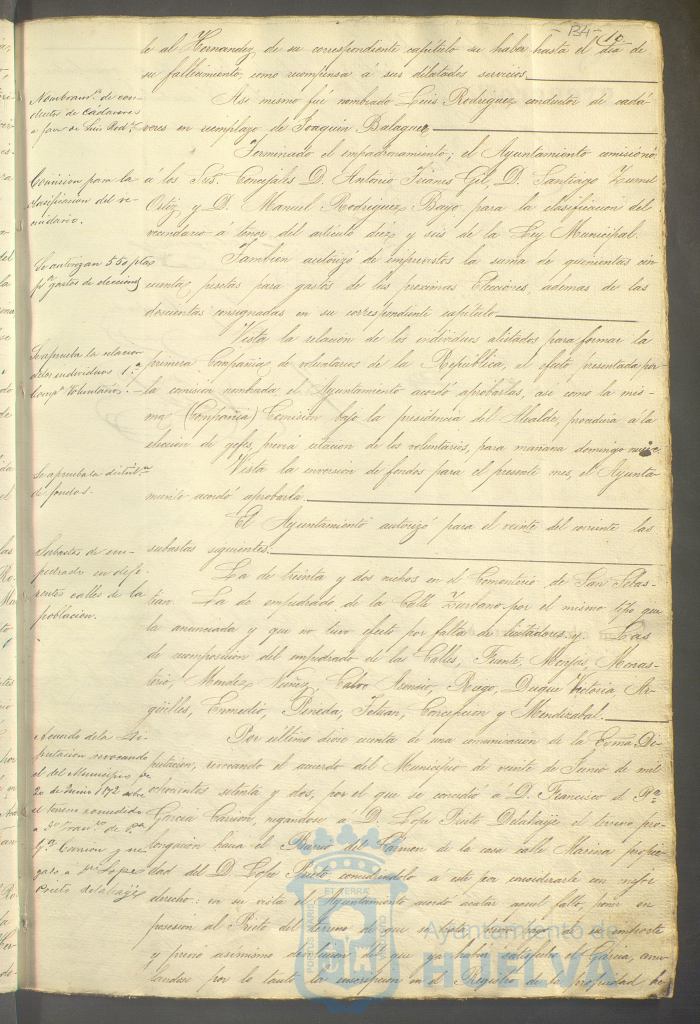 - B4 -
10.
le al Hernandez, de su correspondiente capítulo su haber hasta el dia de
su fallecimiento, como recompensa á sus dilatados servicios.
Nombram.to de con-
ductor de Cadáveres
a favor de Luis Rodz.
Asi mismo fué nombrado Luis Rodriguez conductor de cadá-
veres en reemplazo de Joaquin Balaguer
Comision para la
clasificacion del ve-
cindario.
Terminado el empadronamiento; el Ayuntamiento comisionó
á los Sres. Concejales D. Antonio Gil, D. Santiago
Ortiz y D. Manuel Rodriguez Bayo para la clasificacion del
vecindario á tenor del articulo diez y seis de la Ley Municipal.
Se autorizan 550 ptas
pa gastos de elecciones
Tambien autorizó de imprevistos la suma de quinientas cin
cuenta pesetas para gastos de las proximas Elecciones, ademas de las
doscientas consignadas en su correspondiente capitulo
Se aprueba la relacion
de los individuos 1.a
Comp.a Voluntarios.
Vista la relacion de los individuos alistados para formar la
primera Compañia de voluntarios de la Republica, al efecto presentada por
la comision nombrada el Ayuntamiento acordó aprobarlas, asi como la mis-
ma (Compañia) Comision bajo la presidencia del Alcalde, procediera á la
eleccion de gefes, previa citacion de los voluntarios, para mañana domingo nueve
Se aprueba la distribn
de fondos.
Vista la inversion de fondos para el presente mes, el Ayunta-
miento acordó aprobarla.
El Ayuntamiento autorizó para el veinte del corriente las
subastas siguientes.
Subastas de em-
pedrado en dife-
rentes calles de la
poblacion.
La de treinta y dos nichos en el Cementerio de San Sebas-
tian. La de empedrado de la Calle Zurbano por el mismo tipo que
la anunciada y que no tuvo efecto por falta de licitadores, y Las
de recomposicion del empedrado de las Calles, Fuente, Monjas, Monas-
terio, Mendez Nuñez, Calvo Asensio, Riego, Duque Victoria, Ar-
güelles, Enmedio, Pineda, Tetuan, Concepcion y Mendizabal.
Acuerdo de la Di-
putacion revocando
el del Municipio de
20 de Junio 1872 sobre
el terreno concedido
a Dn Franco de Pa
Ga Carrion y ne-
gado a Dn Lope
Prieto Delabaije
Por último dióse cuenta de una comunicacion de la Exma. Di-
putacion, revocando el acuerdo del Municipio de veinte de Junio de mil
ochocientos setenta y dos, por el que se concedió á D. Francisco de P.a
Garcia Carrion, negandose á D. Lope Prieto Delabaije el terreno pro-
longacion hacia el Barrio del Carmen de la casa calle Marina propie-
dad del D. Lope Prieto concediendolo a este por considerarle con mejor
derecho: en su vista el Ayuntamiento acordó acatar aquel fallo, poner en
posesion al Prieto del terreno de que se trata, previo pago de su importe
y previo asimismo devolucion del que ya habia satisfecho el Garcia, anu-
landose por lo tanto la inscripcion en el Registro de la propiedad he
PORTUS MARIS
ET TERRÆ
CUSTODIA
Ayuntamiento de
HUELVA